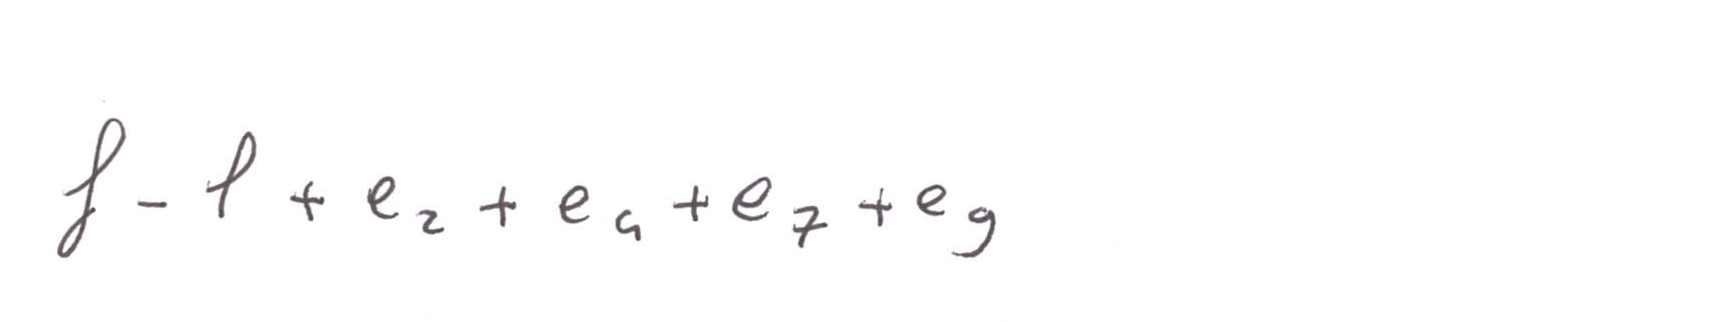 f - l + e₂ + e₄ + e₇ + e₉